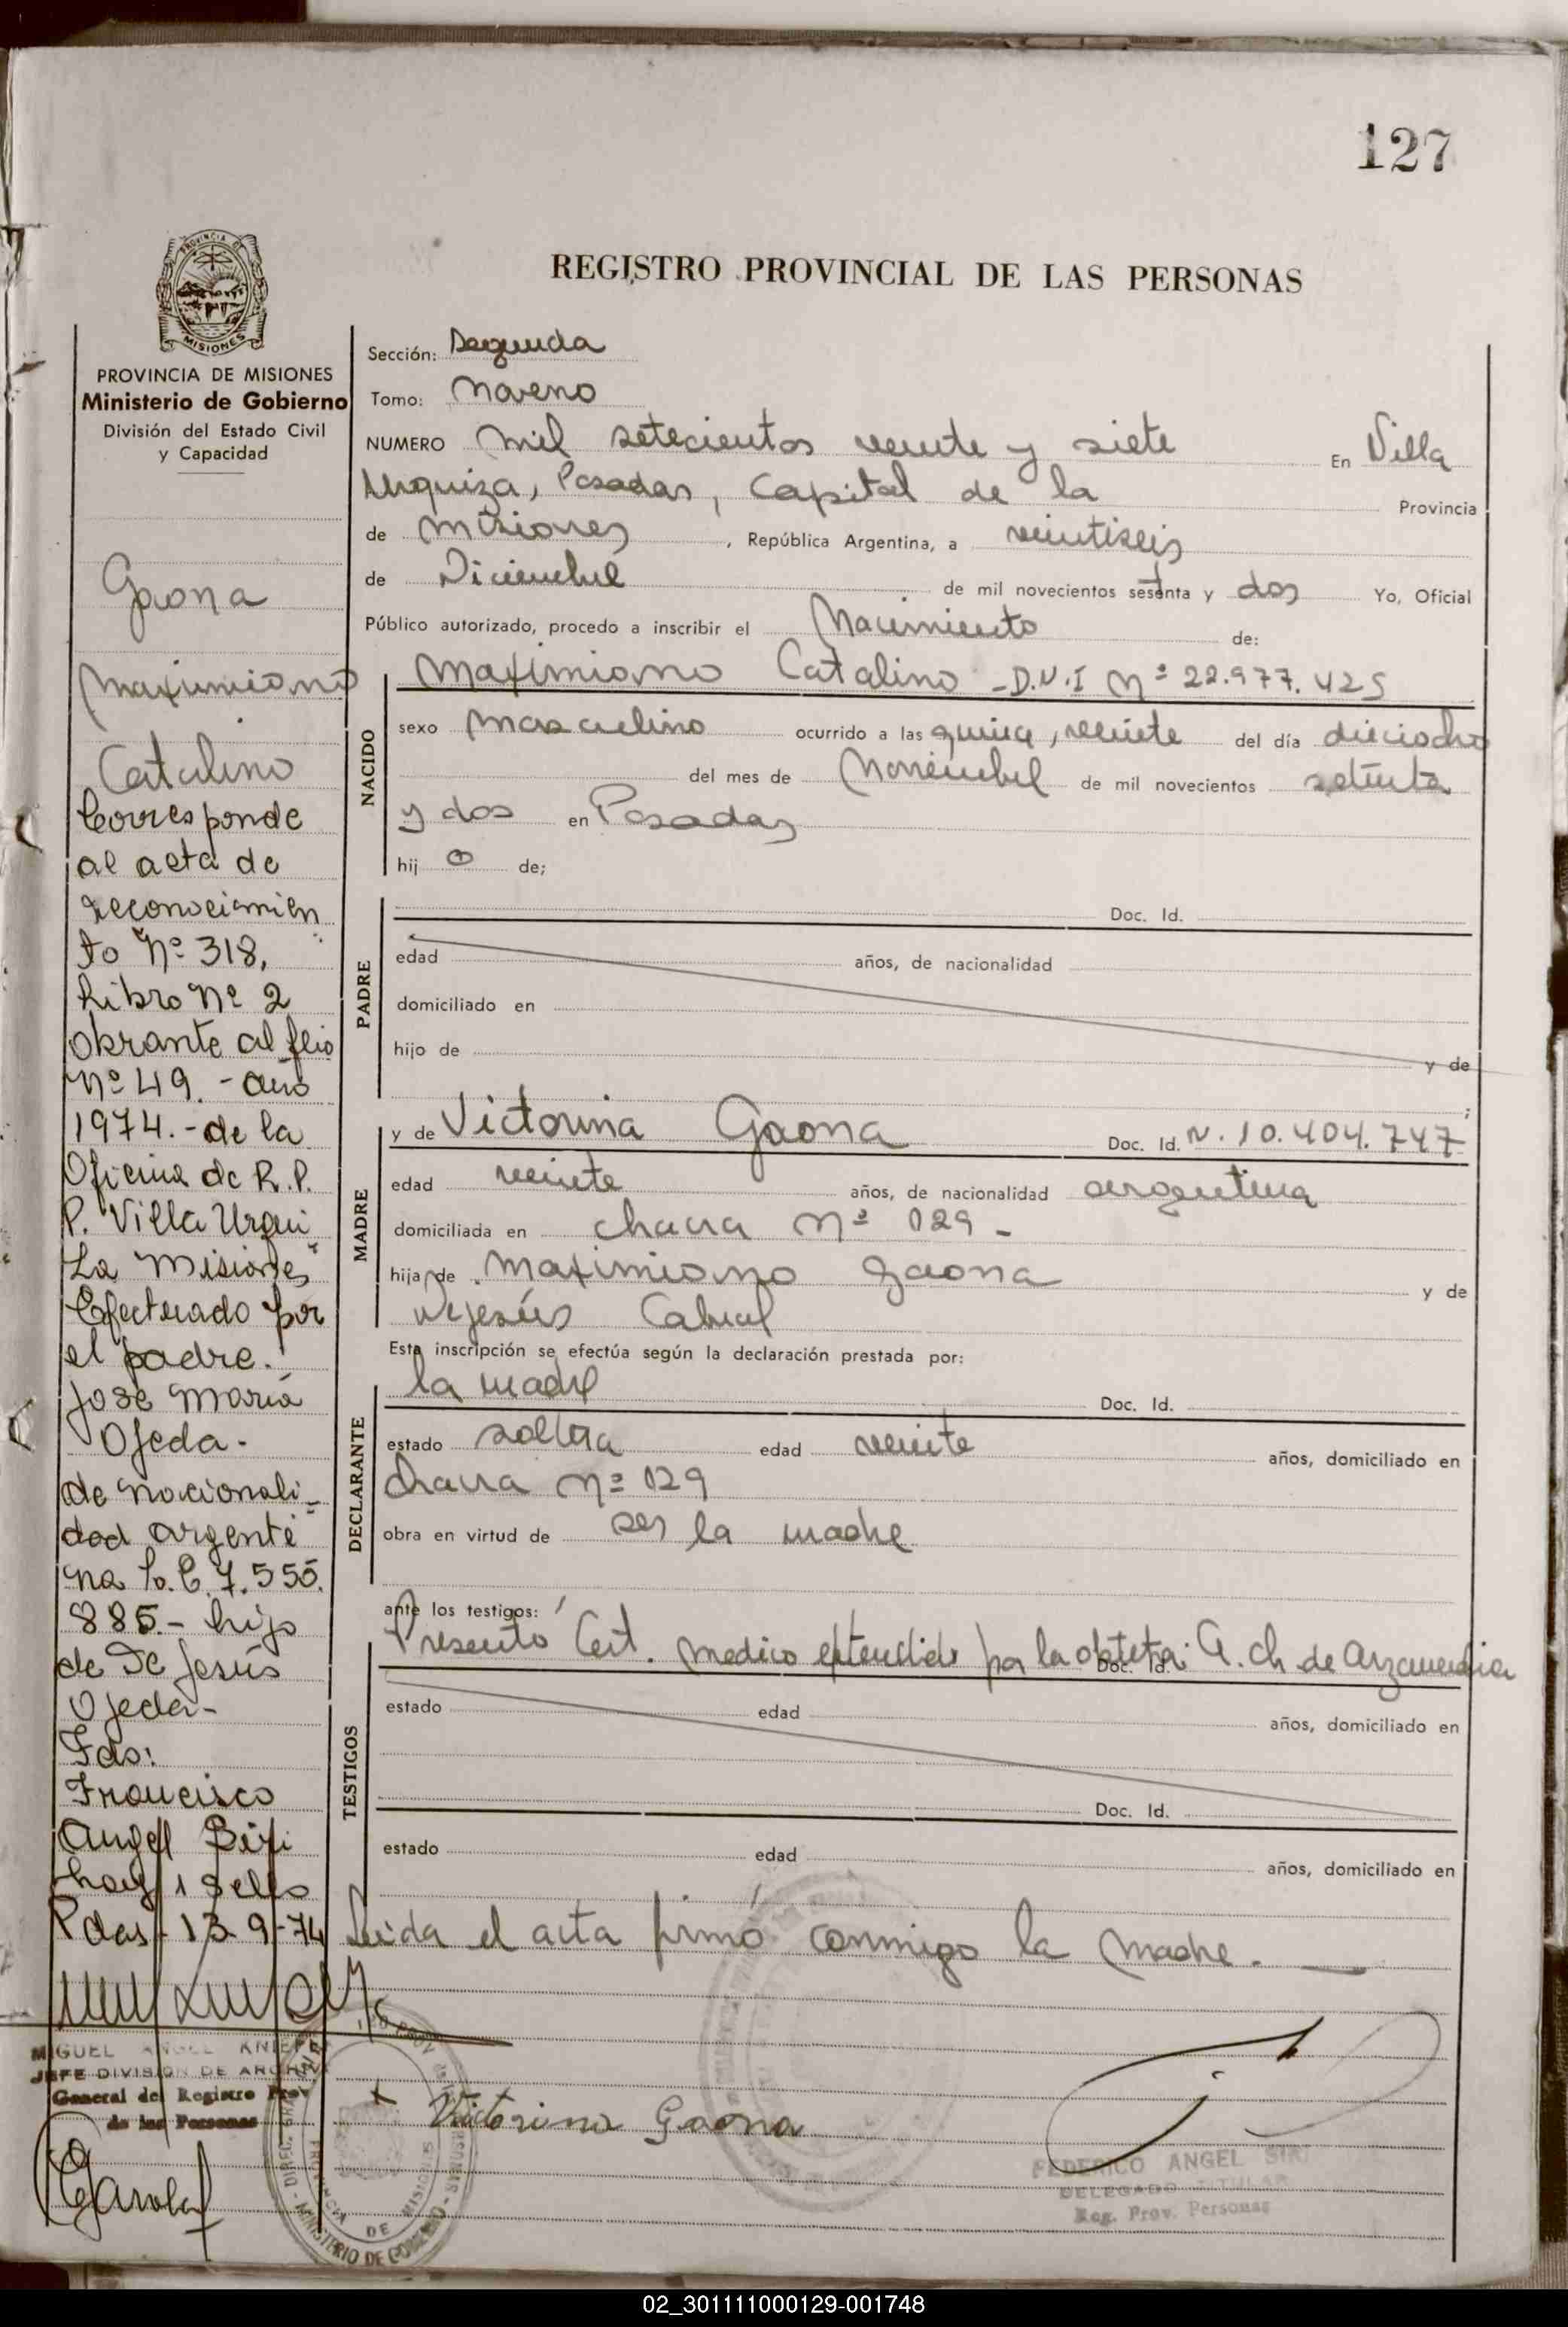 127
REGISTRO PROVINCIAL DE LAS PERSONAS
MISIONES
PROVINCIA DE MISIONES
Ministerio de Gobierno
División del Estado Civil
y Capacidad
Gaona
Maximiano
Catalino
Corresponde
al acta de
reconocimien
to Nº 318,
Libro Nº 2
obrante al flio
Nº 49. - año
1974. - de la
Oficina de R.P.
P. Villa Urqui
za Misiones
Efectuado por
el padre.
José María
Ojeda -
de nacionali-
dad argenti
na 7.555.
885 - hijo
de De Jesús
Ojeda -
Fdo:
Francisco
Angel
hay 1 sello
Pdas - 13-9-74
MIGUEL ANGEL
JEFE DIVISION DE
General del Registro Prov
de las Personas
Sección: Segunda
Tomo: Noveno
NUMERO Mil setecientos veinte y siete En Villa
Urquiza, Posadas, Capital de la Provincia
de Misiones, República Argentina, a veintiseis
de Diciembre de mil novecientos setenta y dos Yo, Oficial
Público autorizado, procedo a inscribir el Nacimiento de:
Maximiano Catalino - D.N.I Nº 22.977.425
NACIDO
sexo Masculino ocurrido a las quince, veinte del día dieciocho
del mes de Noviembre de mil novecientos setenta
y dos en Posadas
hij o de;
PADRE
Doc. Id.
edad años, de nacionalidad
domiciliado en
hijo de y de
;
MADRE
y de Victorina Gaona Doc. Id. N. 10.404.747
edad veinte años, de nacionalidad argentina
domiciliada en chacra Nº 129 -
hija de Maximiano Gaona y de
Dejesús Cabral
Esta inscripción se efectúa según la declaración prestada por:
DECLARANTE
la madre Doc. Id.
estado soltera edad veinte años, domiciliado en
chacra Nº 129
obra en virtud de ser la madre
ante los testigos:
TESTIGOS
Presento Cert. Medico extendido por la obstetra: A. Ch. de Arzamendia Doc. Id.
estado edad años, domiciliado en
Doc. Id.
estado edad años, domiciliado en
Leida el acta firmó conmigo la Madre. -
Victorina Gaona
FEDERICO ANGEL
DELEGADO TITULAR
Reg. Prov. Personas
02_301111000129-001748